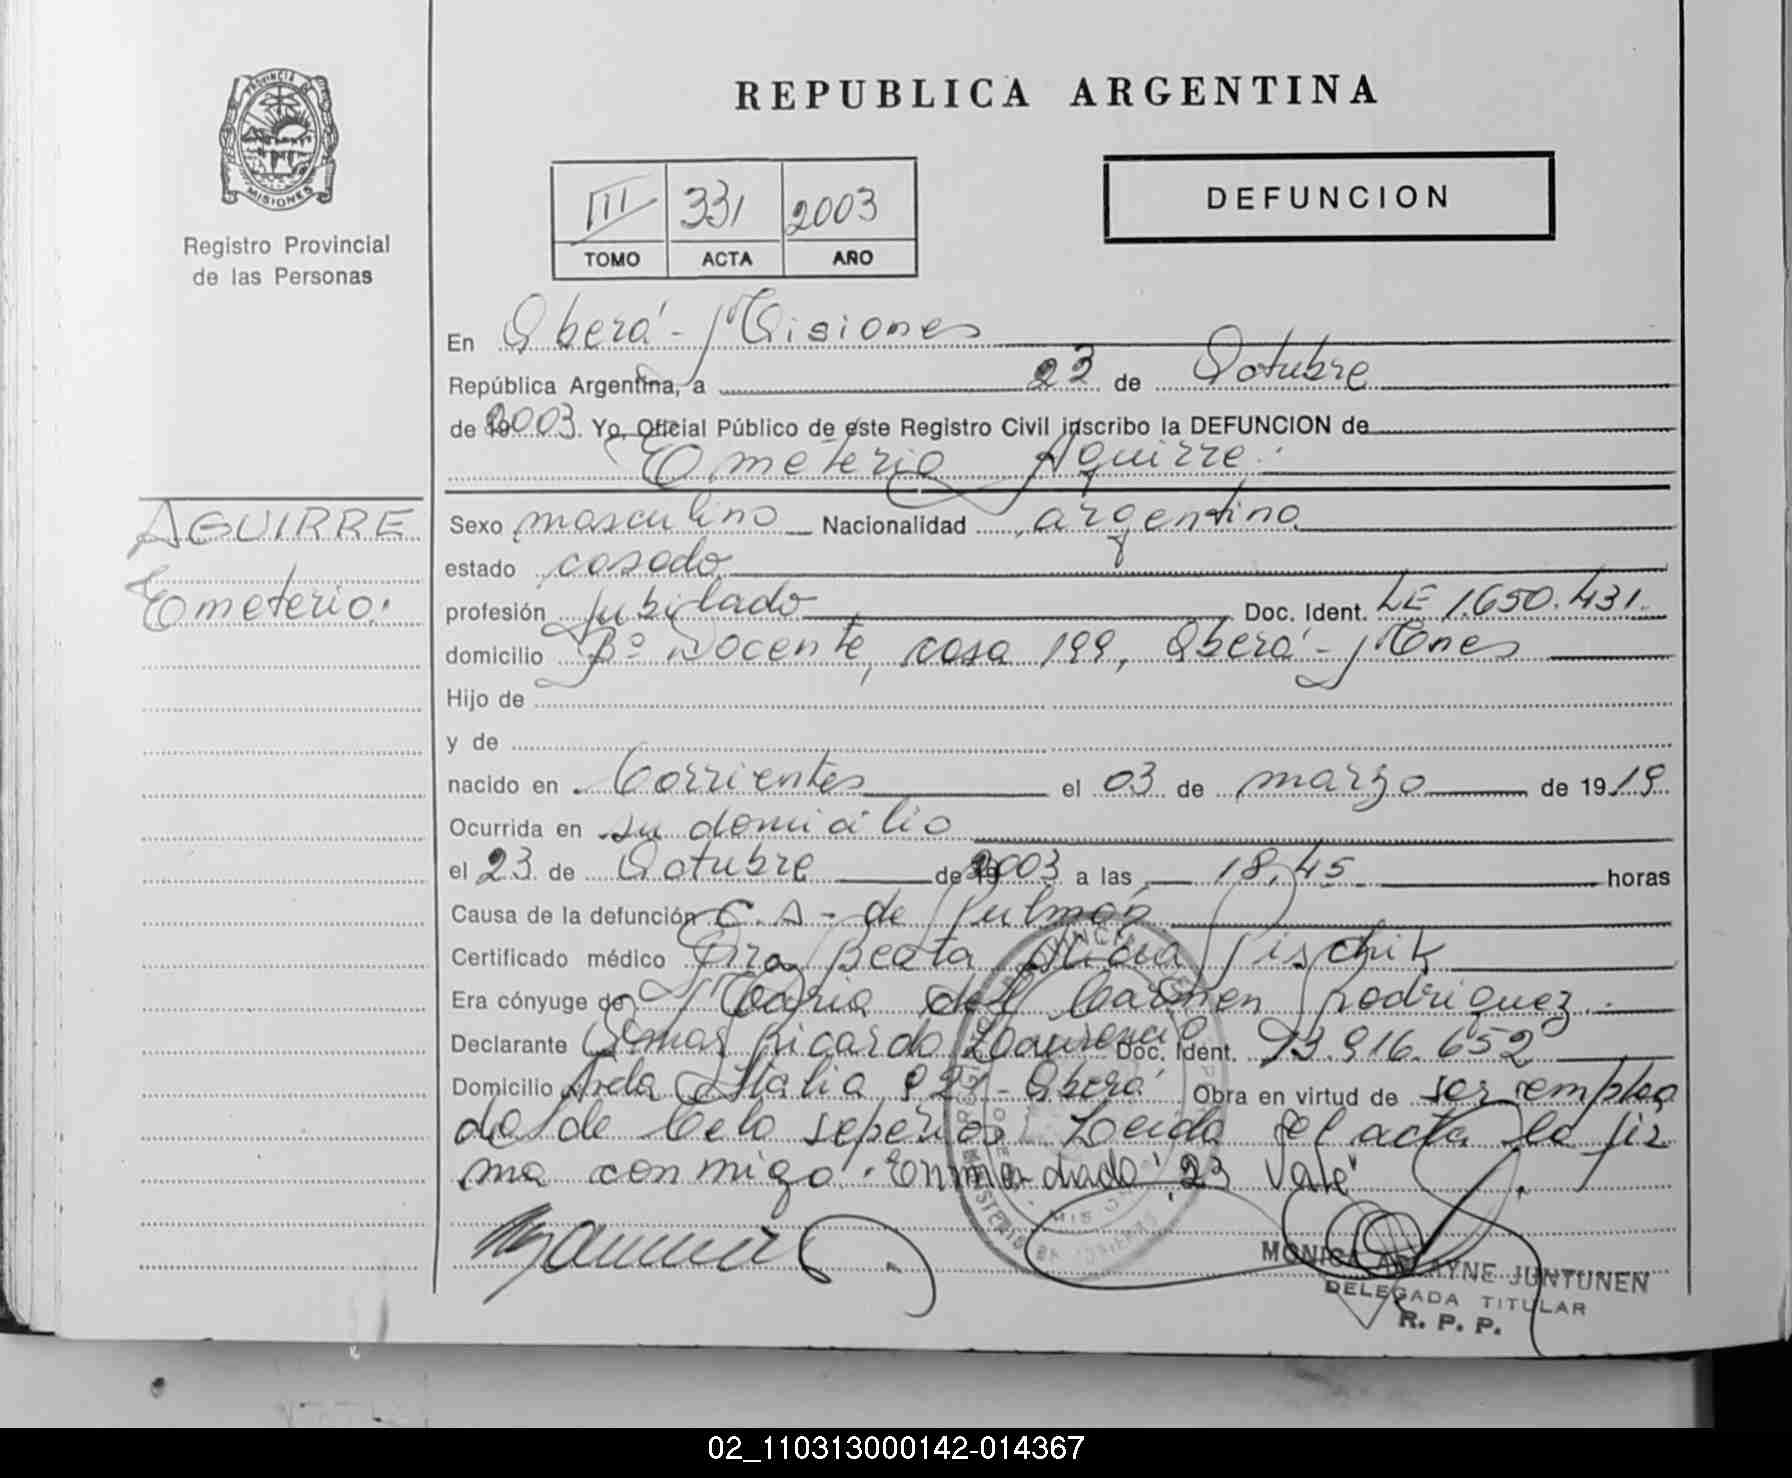 PROVINCIA
MISIONES
Registro Provincial
de las Personas
REPUBLICA ARGENTINA
III 331 2003
TOMO ACTA AÑO
DEFUNCION
En Oberá - Misiones
República Argentina, a 23 de Octubre
de 2003. Yo, Oficial Público de este Registro Civil inscribo la DEFUNCION de
Emeterio Aguirre.
AGUIRRE
Emeterio.
Sexo masculino Nacionalidad argentina
estado casado
profesión Jubilado Doc. Ident. LE 1.650.431.
domicilio Bº Docente, casa 199, Oberá - Mnes
Hijo de
y de
nacido en Corrientes el 03 de marzo de 1919
Ocurrida en su domicilio
el 23 de Octubre de 2003 a las 18,45 horas
Causa de la defunción C. A - de Pulmón
Certificado médico Dra Beata Alicia Pischik
Era cónyuge de María del Carmen Rodriguez.
Declarante Ricardo Doc. Ident. 93.916.652
Domicilio Avda Italia - Oberá Obra en virtud de ser emplea
do de Leida el acta la fir
ma conmigo. Enmendado: 23 Vale"
MONICA JUNTUNEN
DELEGADA TITULAR
R. P. P.
02_110313000142-014367